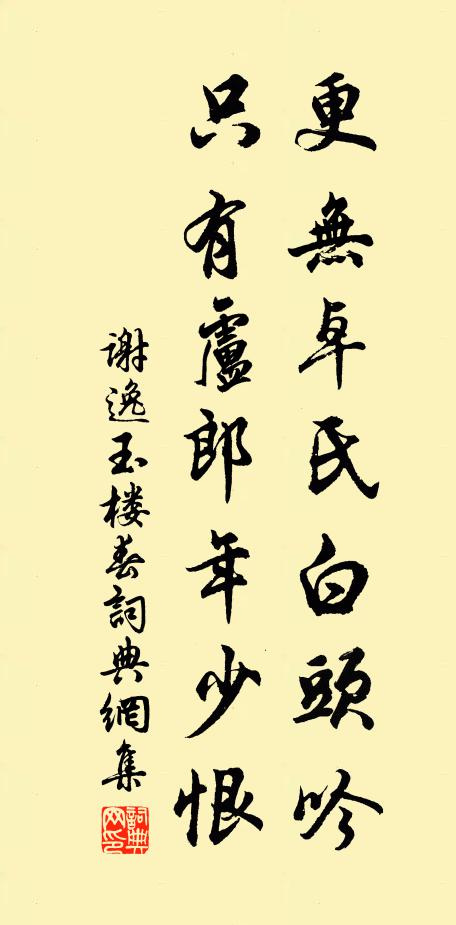 更無卓氏白頭吟
只有盧郎年少恨
謝逸玉楼春詞典網集
詞典網印